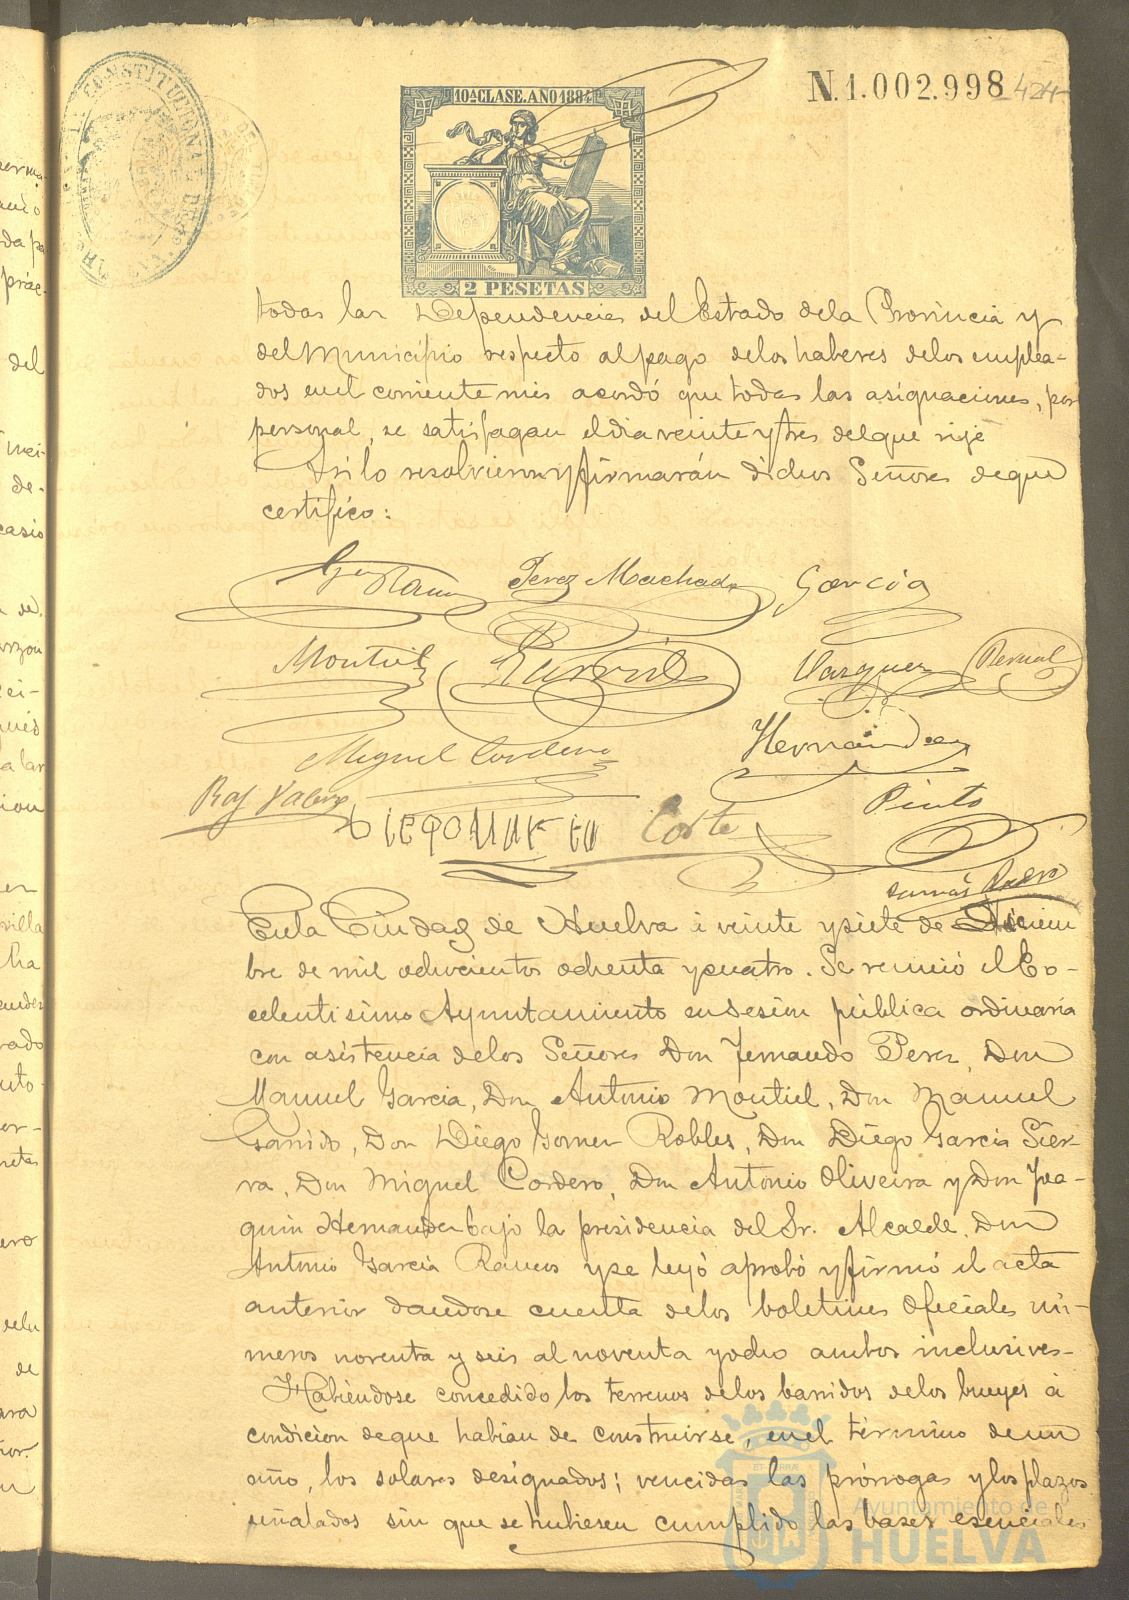 N.1.002.998
424
10ª CLASE. AÑO 1884
2 PESETAS
todas las Dependencias del Estado dela Provincia y
del Municipio respecto al pago delos haberes delos emplea-
dos enel corriente mes acordó que todas las asignaciones, por
personal, se satisfagan eldia veinte y tres delque rije
Asi lo resolvieron y firmarán dichos Señores deque
certifico:
Perez Machado García
Montiel Garrido Vazquez Bernal
Miguel Cordero Hernandez
Pinto
Corte
Enla Ciudad de Huelva á veinte y siete de Diciem
bre de mil ochocientos ochenta y cuatro. Se reunió el Ex-
celentisimo Ayuntamiento en sesion pública ordinaria
con asistencia delos Señores Don Fernando Perez, Don
Manuel Garcia, Don Antonio Montiel, Don Manuel
Garrido, Don Diego Gomez Robles, Don Diego Garcia Sier-
ra, Don Miguel Cordero, Don Antonio Oliveira y Don Joa-
quin Hernandez bajo la presidencia del Sr. Alcalde, Don
Antonio García Ramos y se leyó aprobó y firmó el acta
anterior dandose cuenta delos boletines oficiales nú-
meros noventa y seis al noventa y ocho ambos inclusives-
Habiéndose concedido los terrenos delos barridos delos bueyes á
condicion deque habian de construirse, enel término de un
año, los solares designados; vencidas las prórrogas y los plazos
señalados sin que se hubiesen cumplido las bases esenciales
Ayuntamiento de
HUELVA